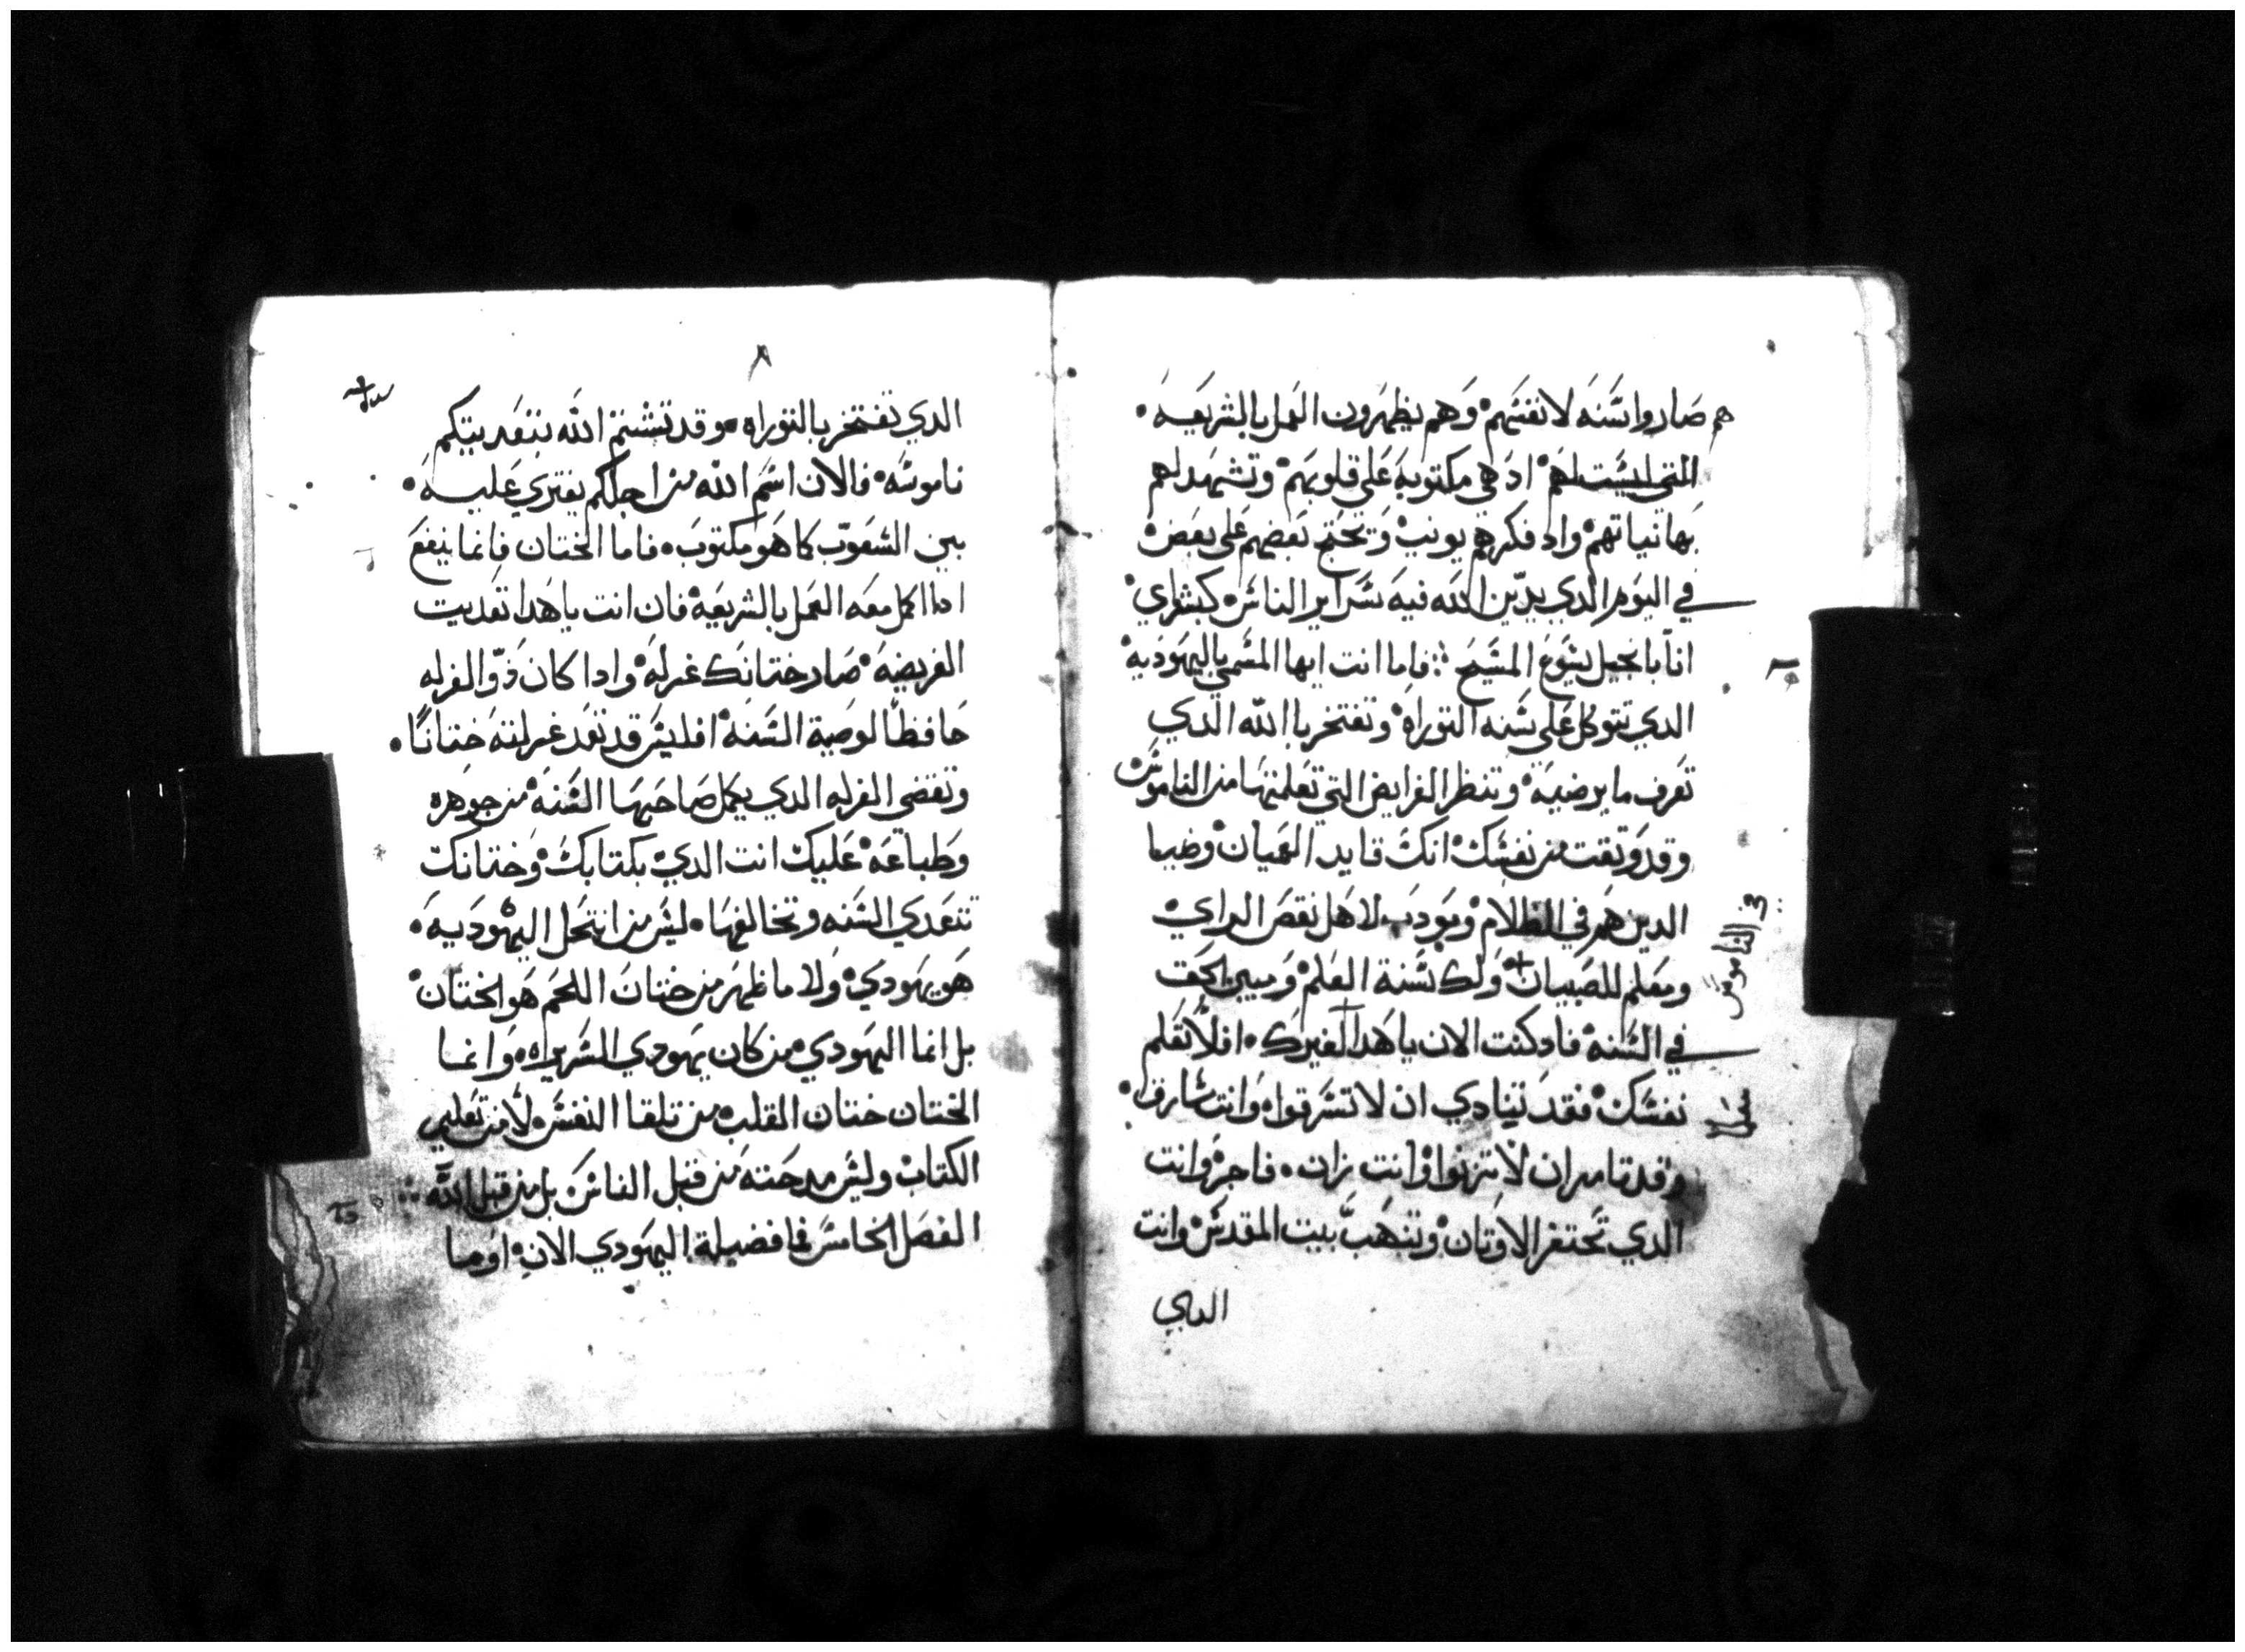 هم صاروا سنه لانفسهم وهم يظهرون العمل بالشريعه
التي ليست لهم اد هي مكتوبه على قلوبهم وتشهد لهم
بها نياتهم واد فكرهم يونب وتحتج بعضهم على بعض
في اليوم الدي يدين الله فيه سراير الناس كبشراي
انا بانجيل يشوع المسيح فاما انت ايها المسمي باليهوديه
الدي تتوكل على سنه التوراه وتفتخر باالله الدي
تعرف ما يرضيه وتنظر الفرايض التي تعلمتها من الناموس
وقد وتقت من نفسك انك قايد العميان وضيا
الدين هم في الظلام ومودب لاهل نقص الراي
ومعلم للصبيان ولك سنة العلم ومبين الحق
في السنه فادكنت الان ياهدا لغيرك افلا تعلم
نفسك فقد تنادي ان لا تسرقوا وانت سارق
وقد تامر ان لا تزنوا وانت زان فاجر وانت
الدي تحتقر الاوتان وتنهب بيت المقدس وانت
الداي
في الناموس
٨
الدي تفتخر بالتوراه وقد تشتم الله بتعديتكم
ناموسه فالان اسم الله من اجلكم يفتري عليه
بين الشعوب كما هو مكتوب فاما الختان فانما ينفع
ادا اكمل معه العمل بالشريعه فان انت ياهدا تعديت
الفريضه صار ختانك غرله وادا كان ذو الغرله
حافظا لوصية السنه افليس قد تعد غرلته ختانا
وتقضي الغرله الدي يكمل صاحبها السنه من جوهره
وطباعه عليك انت الدي بكتابك وختانك
تتعدي السنه وتخالفها ليس من انتحل اليهوديه
هو يهودي ولا ما ظهر من ختان اللحم هو الختان
بل انما اليهودي من كان يهودي السريره وانما
الختان ختان القلب من تلقا النفس لا من تعليم
الكتاب وليس مدحته من قبل الناس بل من قبل الله
الفصل الخامس فما فضيلة اليهودي الان او ما